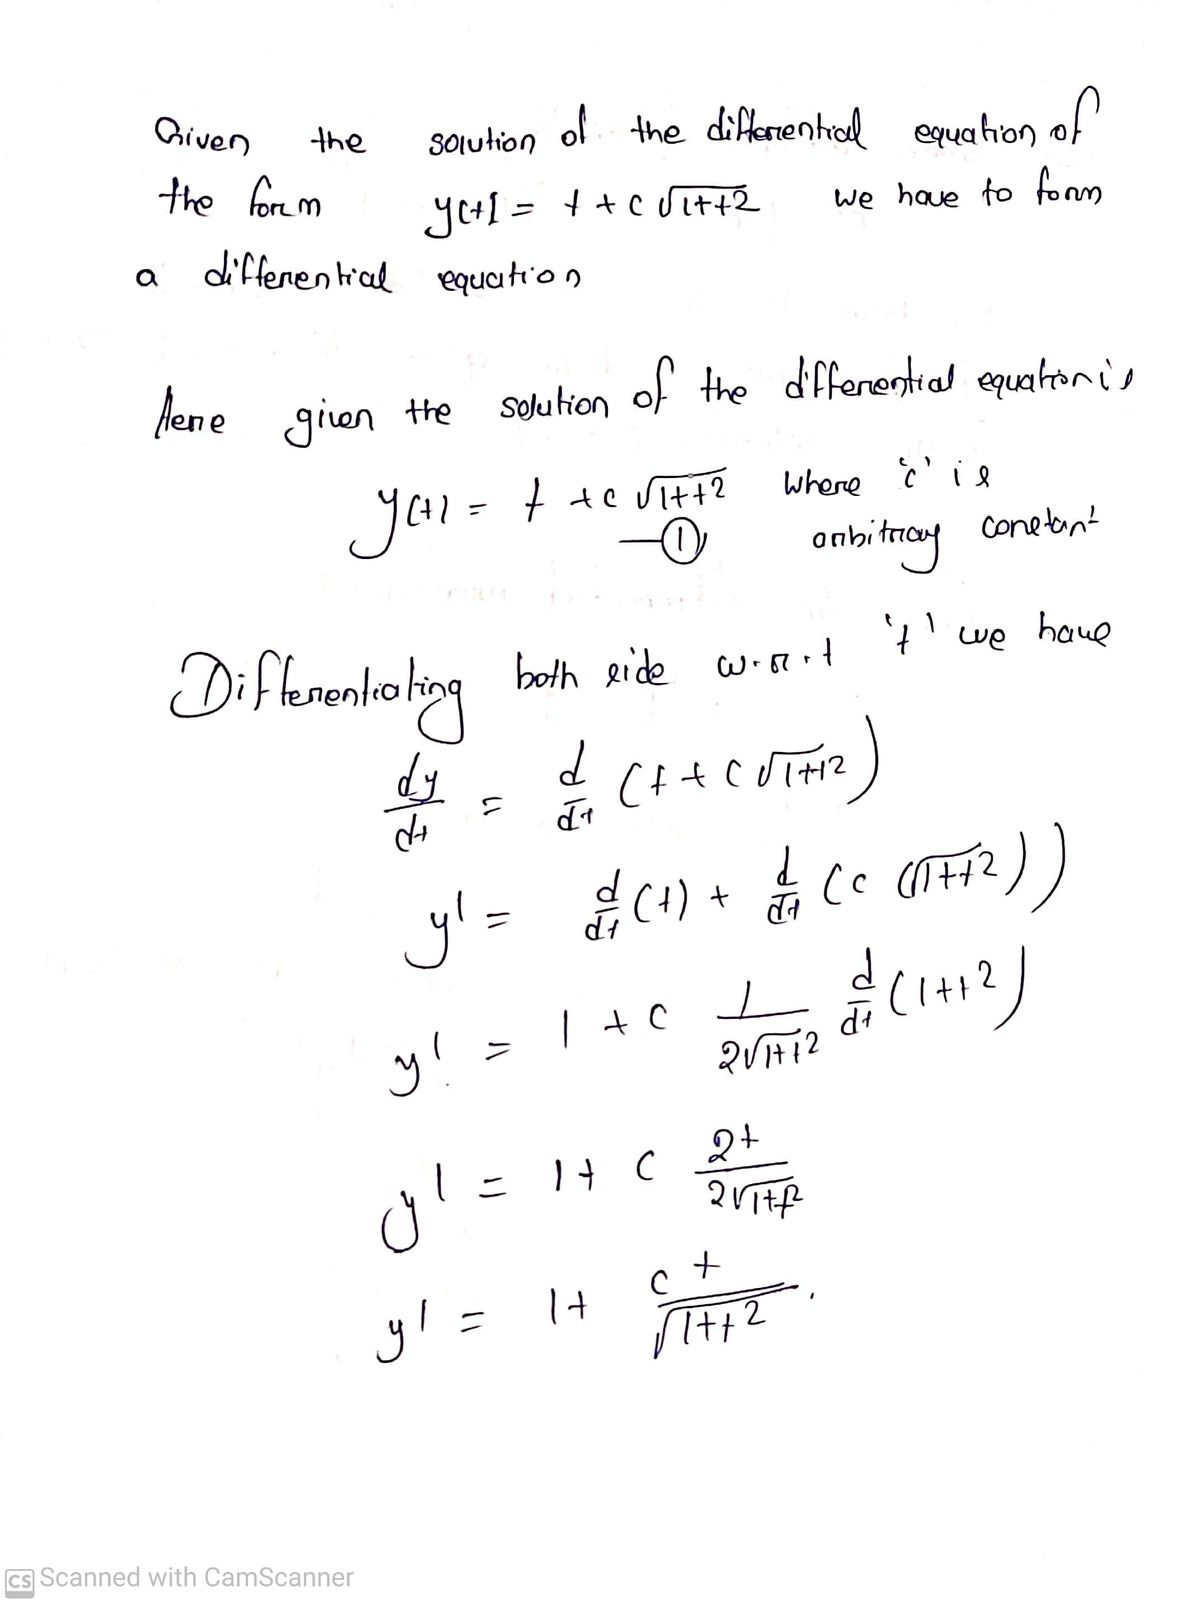 Given the solution of the differential equation of
the form y(t) = t + c √1+t2 we have to form
a differential equation
Here given the solution of the differential equation is
y(t) = t + c √1+t2 where 'c' is
— ① arbitray constant
Differentiating both side w.r.t 't' we have
dy/dt = d/dt (t + c √1+t2)
y' = d/dt (t) + d/dt (c (√1+t2))
y' = 1 + c 1/2√1+t2 d/dt (1+t2)
y' = 1 + c 2t/2√1+t2
y' = 1+ ct/√1+t2 .
CS Scanned with CamScanner